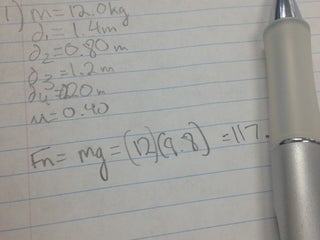 1) m=12.0kg
d₁=1.4m
d₂=0.80m
d₃=1.2m
d₄=020m
μ=0.40
Fn=mg=(12)(9.8)=117.